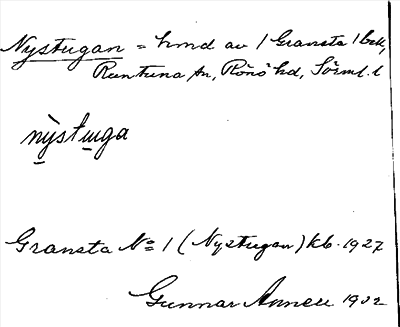 Nystugan = hmd av 1 Gransta 1 bck,
Runtuna sn, Rönö hd, Sörml. l
nỳstuga
Gransta No 1 (Nystugan) kb. 1927
Gunnar 1932